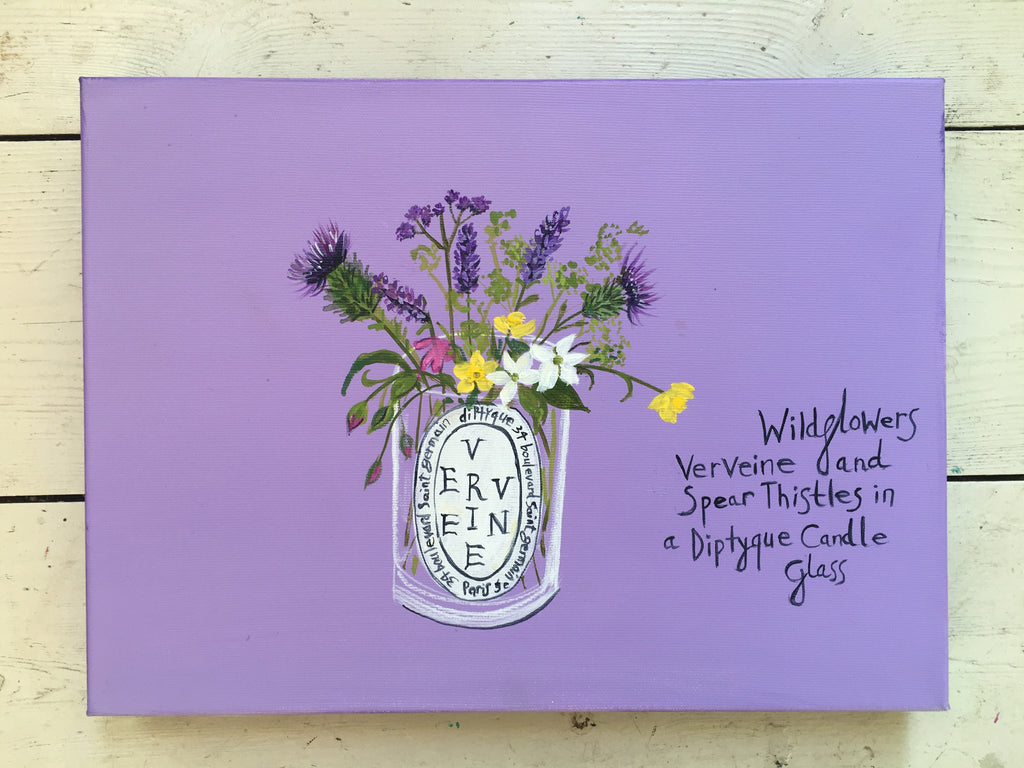 diptyque 34 boulevard Saint germain
Paris 5e
34 boulevard Saint germain
V
E R V
E I N
E
Wildflowers
Verveine and
Spear Thistles in
a Diptyque Candle
Glass